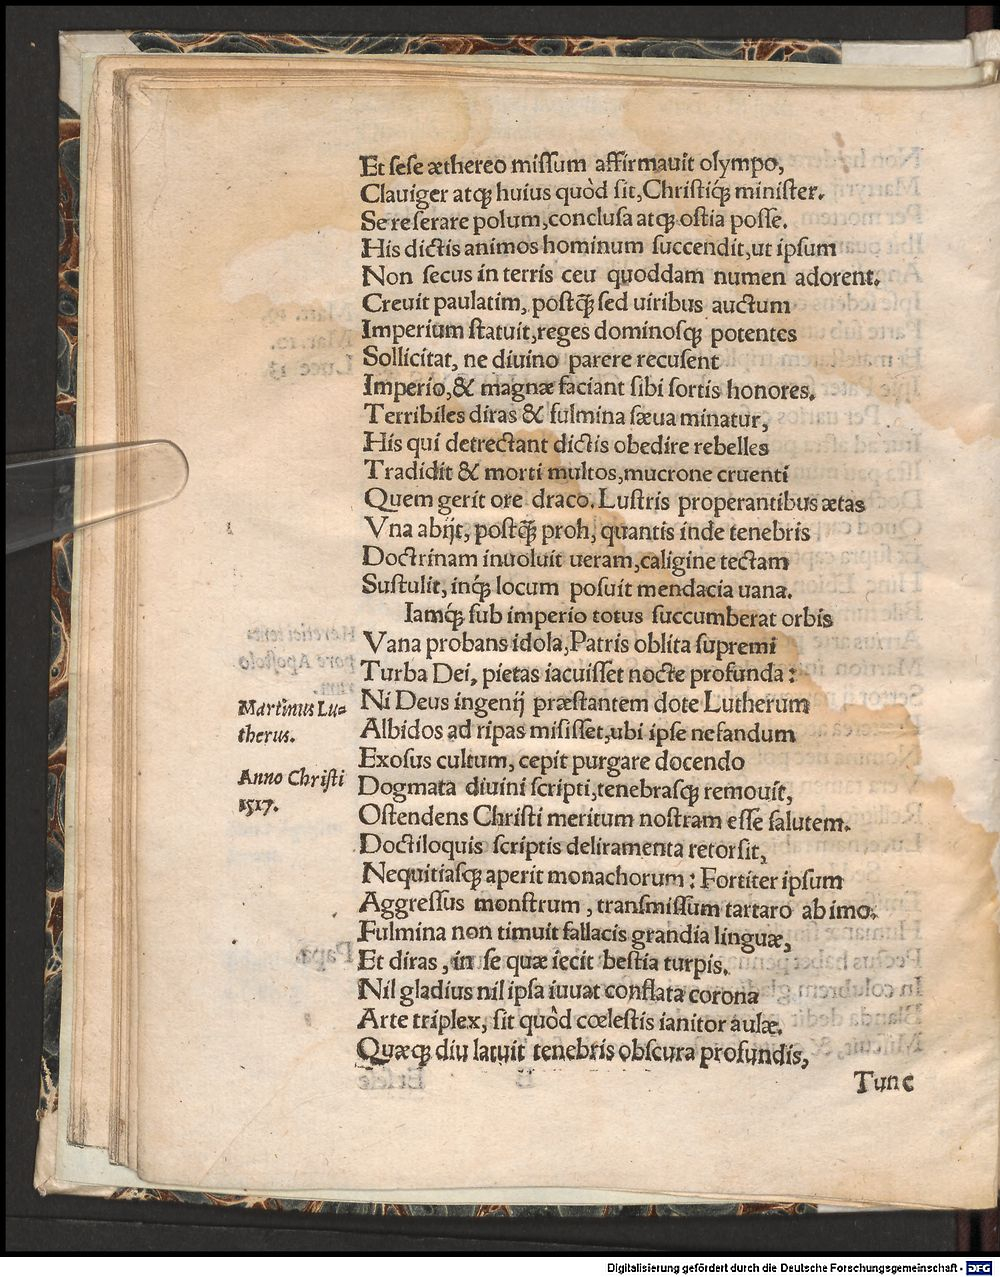 Et sese æthereo missum affirmauit olympo,
Clauiger atq́; huius quòd sit, Christiq́; minister.
Se reserare polum, conclusa atq́; ostia posse.
His dictis animos hominum succendit, ut ipsum
Non secus in terris ceu quoddam numen adorent.
Creuit paulatim, postq̃; sed uiribus auctum
Imperium statuit, reges dominosq́; potentes
Sollicitat, ne diuino parere recusent
Imperio, & magnæ faciant sibi sortis honores.
Terribiles diras & fulmina sæua minatur,
His qui detrectant dictis obedire rebelles
Tradidit & morti multos, mucrone cruenti
Quem gerit ore draco. Lustris properantibus ætas
Vna abijt, postq̃; proh, quantis inde tenebris
Doctrinam inuoluit ueram, caligine tectam
Sustulit, inq́; locum posuit mendacia uana.
Iamq́; sub imperio totus succumberat orbis
Vana probans idola, Patris oblita supremi
Turba Dei, pietas iacuisset nocte profunda:
Martinus Lu=
therus.
Ni Deus ingenij præstantem dote Lutherum
Albidos ad ripas misisset, ubi ipse nefandum
Exosus cultum, cepit purgare docendo
Anno Christi
1517.
Dogmata diuini scripti, tenebrasq́; remouit,
Ostendens Christi meritum nostram esse salutem.
Doctiloquis scriptis deliramenta retorsit,
Nequitiasq́; aperit monachorum: Fortiter ipsum
Aggressus monstrum, transmissum tartaro ab imo.
Fulmina non timuit fallacis grandia linguæ,
Et diras, in se quæ iecit bestia turpis.
Nil gladius nil ipsa iuuat conflata corona
Arte triplex, sit quòd cœlestis ianitor aulæ.
Quæq́; diu latuit tenebris obscura profundis,
Tunc
Digitalisierung gefördert durch die Deutsche Forschungsgemeinschaft - DFG